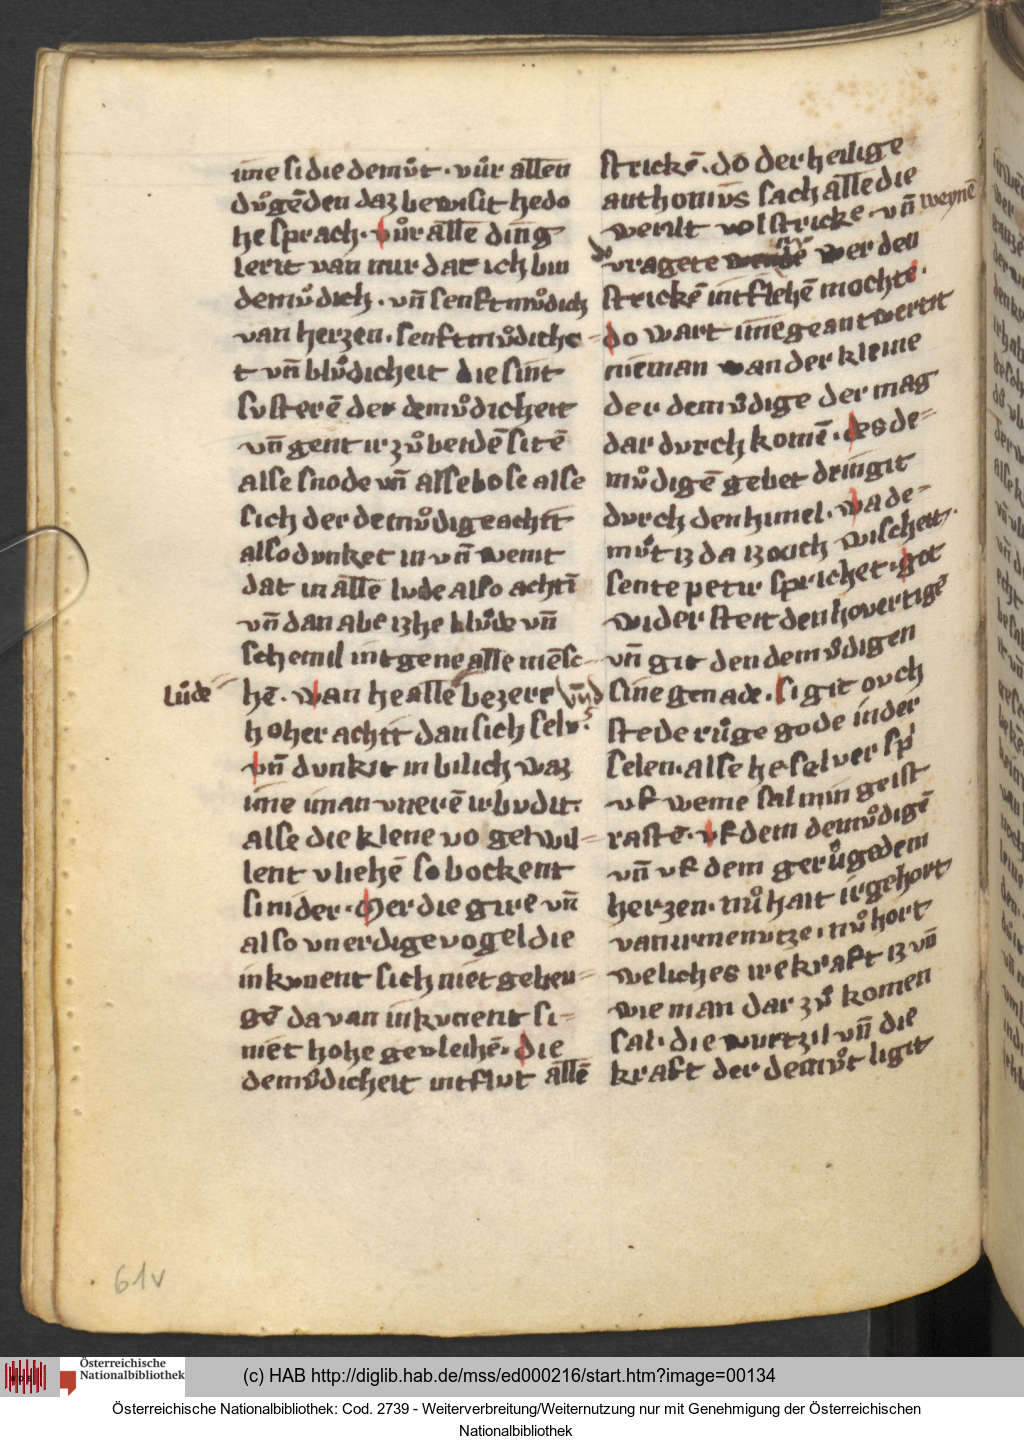 ime si die demůt · vůr allen
důgēden daz bewisit he do
he sprach · vůr allē ding
lerit van mir dat ich bin
demůdich · vn̄ senftmůdich
van herzen · senftmůdiche-
t vn̄ blůdicheit die sint
susterē der demůdicheit
vn̄ gent ir zů beidē sitē
alse snode vn̄ alse bose alse
sich der demůdige achtit
also dunket in vn̄ wenit
dat in allē lude also achtī
vn̄ dan abe iz he blůde vn̄
schemil intgene alle mēsc-
lůde hē · wan he alle bezere vn̄
hoher achtit dan sich selv̉
vn̄ dunkit in bilich waz
ime iman vnerē irbudit·
alse die klene vogel wil-
lent vliehē so bockent
si nider · Mer die gire vn̄
also vnerdige vogel die
inkunent sich niet gebeu-
gē da van inkunent si-
niet hohe gevleihē · die
demůdicheit intflut allē
strickē · do der heilige
anthonius sach alle die
werilt vol stricke · vn̄ weynē-
do vragete wer den
strickē intflehē mochte·
do wart ime geantwertit
nieman wan der kleine
der demůdige der mag
dar durch komē · des de-
můdigē gebet dringit
durch den himel · wa de-
můt iz da iz ouch wisheit·
sente petir sprichet · got
widersteit den hovertigē
vn̄ git den demůdigen
sine genade · si git ouch
stede růge gode in der
selen · alse he selver sp̄
vf weme sal min geist
rastē · vf dem demůdigē
vn̄ vf dem gerůgedem
herzen · nů hait ir gehort
van irme nutze · nů hort
weliches ire kraft iz vn̄
wie man dar zů komen
sal · die wurtzil vn̄ die
kraft der demůt ligit
61v
Österreichische
Nationalbibliothek
(c) HAB http://diglib.hab.de/mss/ed000216/start.htm?image=00134
Österreichische Nationalbibliothek: Cod. 2739 - Weiterverbreitung/Weiternutzung nur mit Genehmigung der Österreichischen
Nationalbibliothek